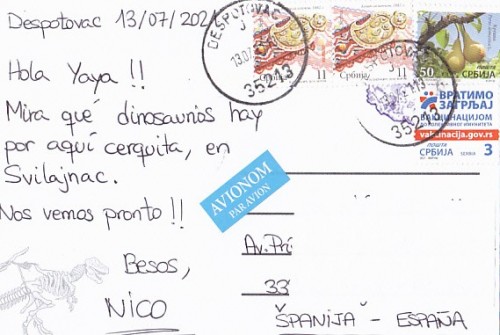 Despotovac 13/07/202
Hola Yaya !!
Mira qué dinosaurios hay
por aquí cerquita, en
Svilajnac.
Nos vemos pronto !!
Besos,
NICO
DESPOTOVAC
35213
Србија 11
Србија 11
50
ПОШТА
СРБИЈА
ВРАТИМО
ЗАГРЉАЈ
ВАКЦИНАЦИЈОМ
ДО КОЛЕКТИВНОГ ИМУНИТЕТА
vakcinacija.gov.rs
ПОШТА
СРБИЈА 3
AVIONOM
PAR AVION
Av. Prí
33
ŠPANIJA - ESPAÑA